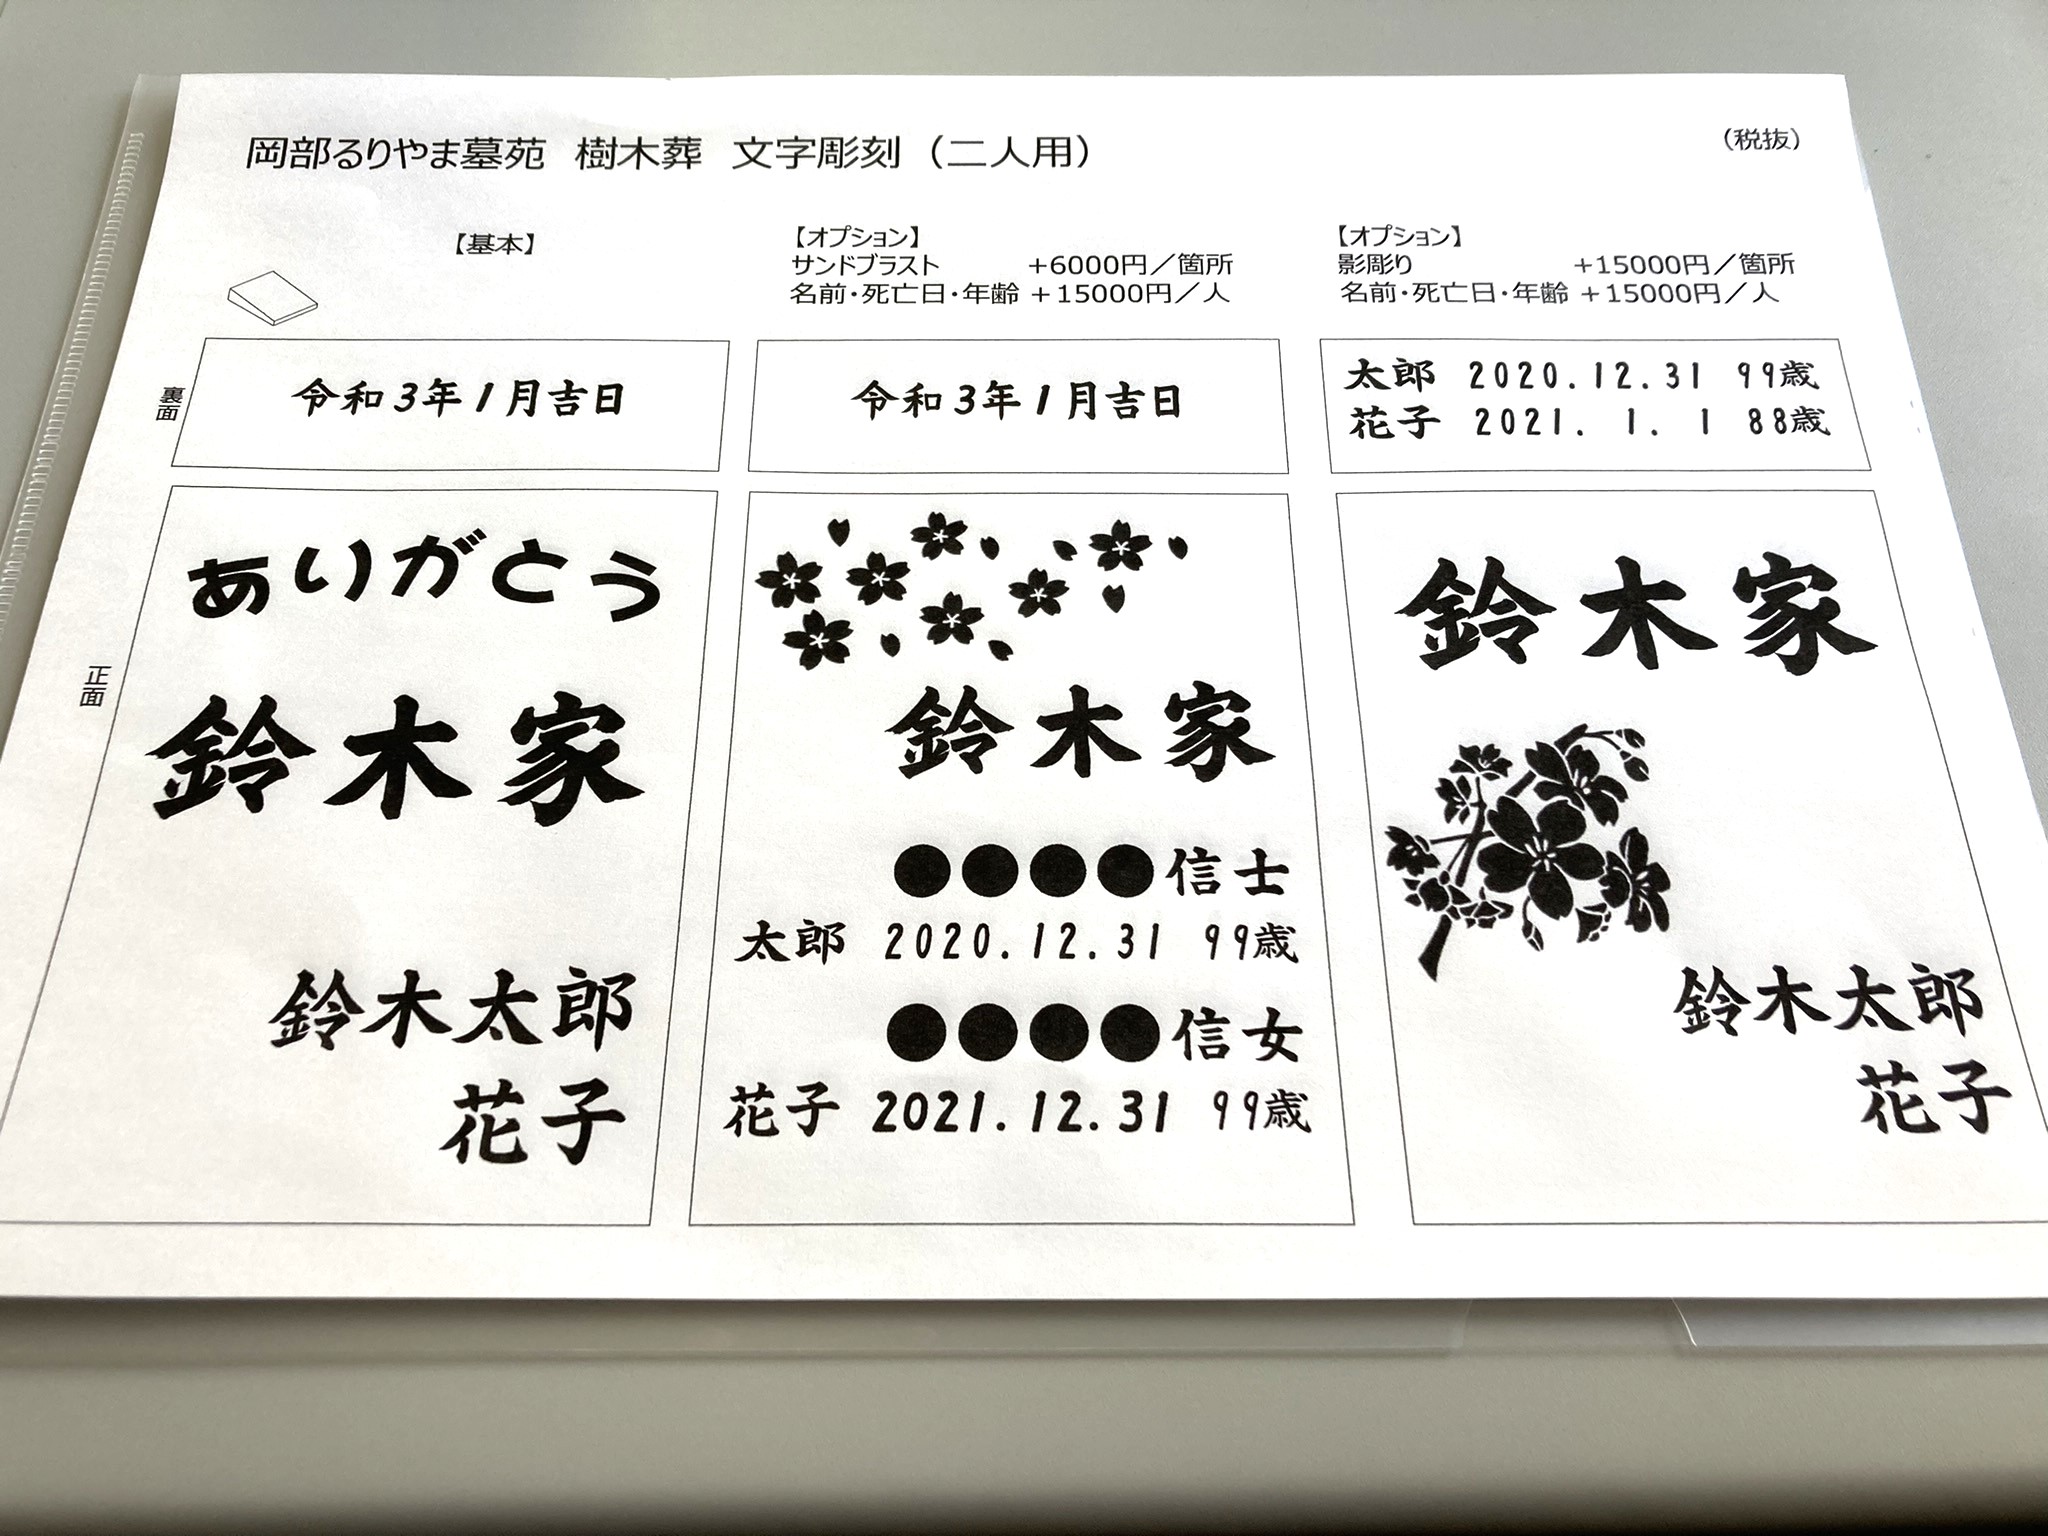 岡部るりやま墓苑　樹木葬　文字彫刻（二人用）
（税抜）
【基本】
【オプション】
サンドブラスト　＋6000円／箇所
名前・死亡日・年齢 ＋15000円／人
【オプション】
影彫り　＋15000円／箇所
名前・死亡日・年齢 ＋15000円／人
裏面
令和3年1月吉日
令和3年1月吉日
太郎 2020.12.31 99歳
花子 2021. 1. 1 88歳
正面
ありがとう
鈴木家
鈴木太郎
花子
鈴木家
●●●●信士
太郎 2020.12.31 99歳
●●●●信女
花子 2021.12.31 99歳
鈴木家
鈴木太郎
花子